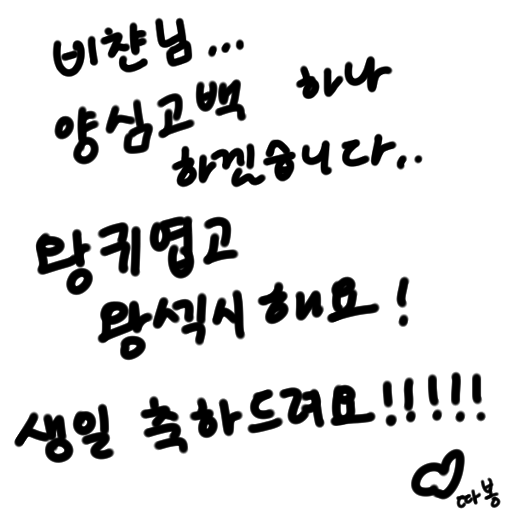 비챤님...
양심고백 하나
하겠습니다..
왕귀엽고
왕섹시해요!
생일 축하드려요!!!!!
따봉